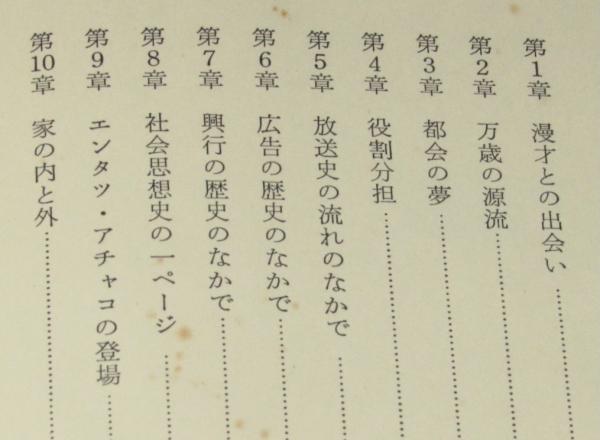 第1章 漫才との出会い
第2章 万歳の源流
第3章 都会の夢
第4章 役割分担
第5章 放送史の流れのなかで
第6章 広告の歴史のなかで
第7章 興行の歴史のなかで
第8章 社会思想史の一ページ
第9章 エンタツ・アチャコの登場
第10章 家の内と外